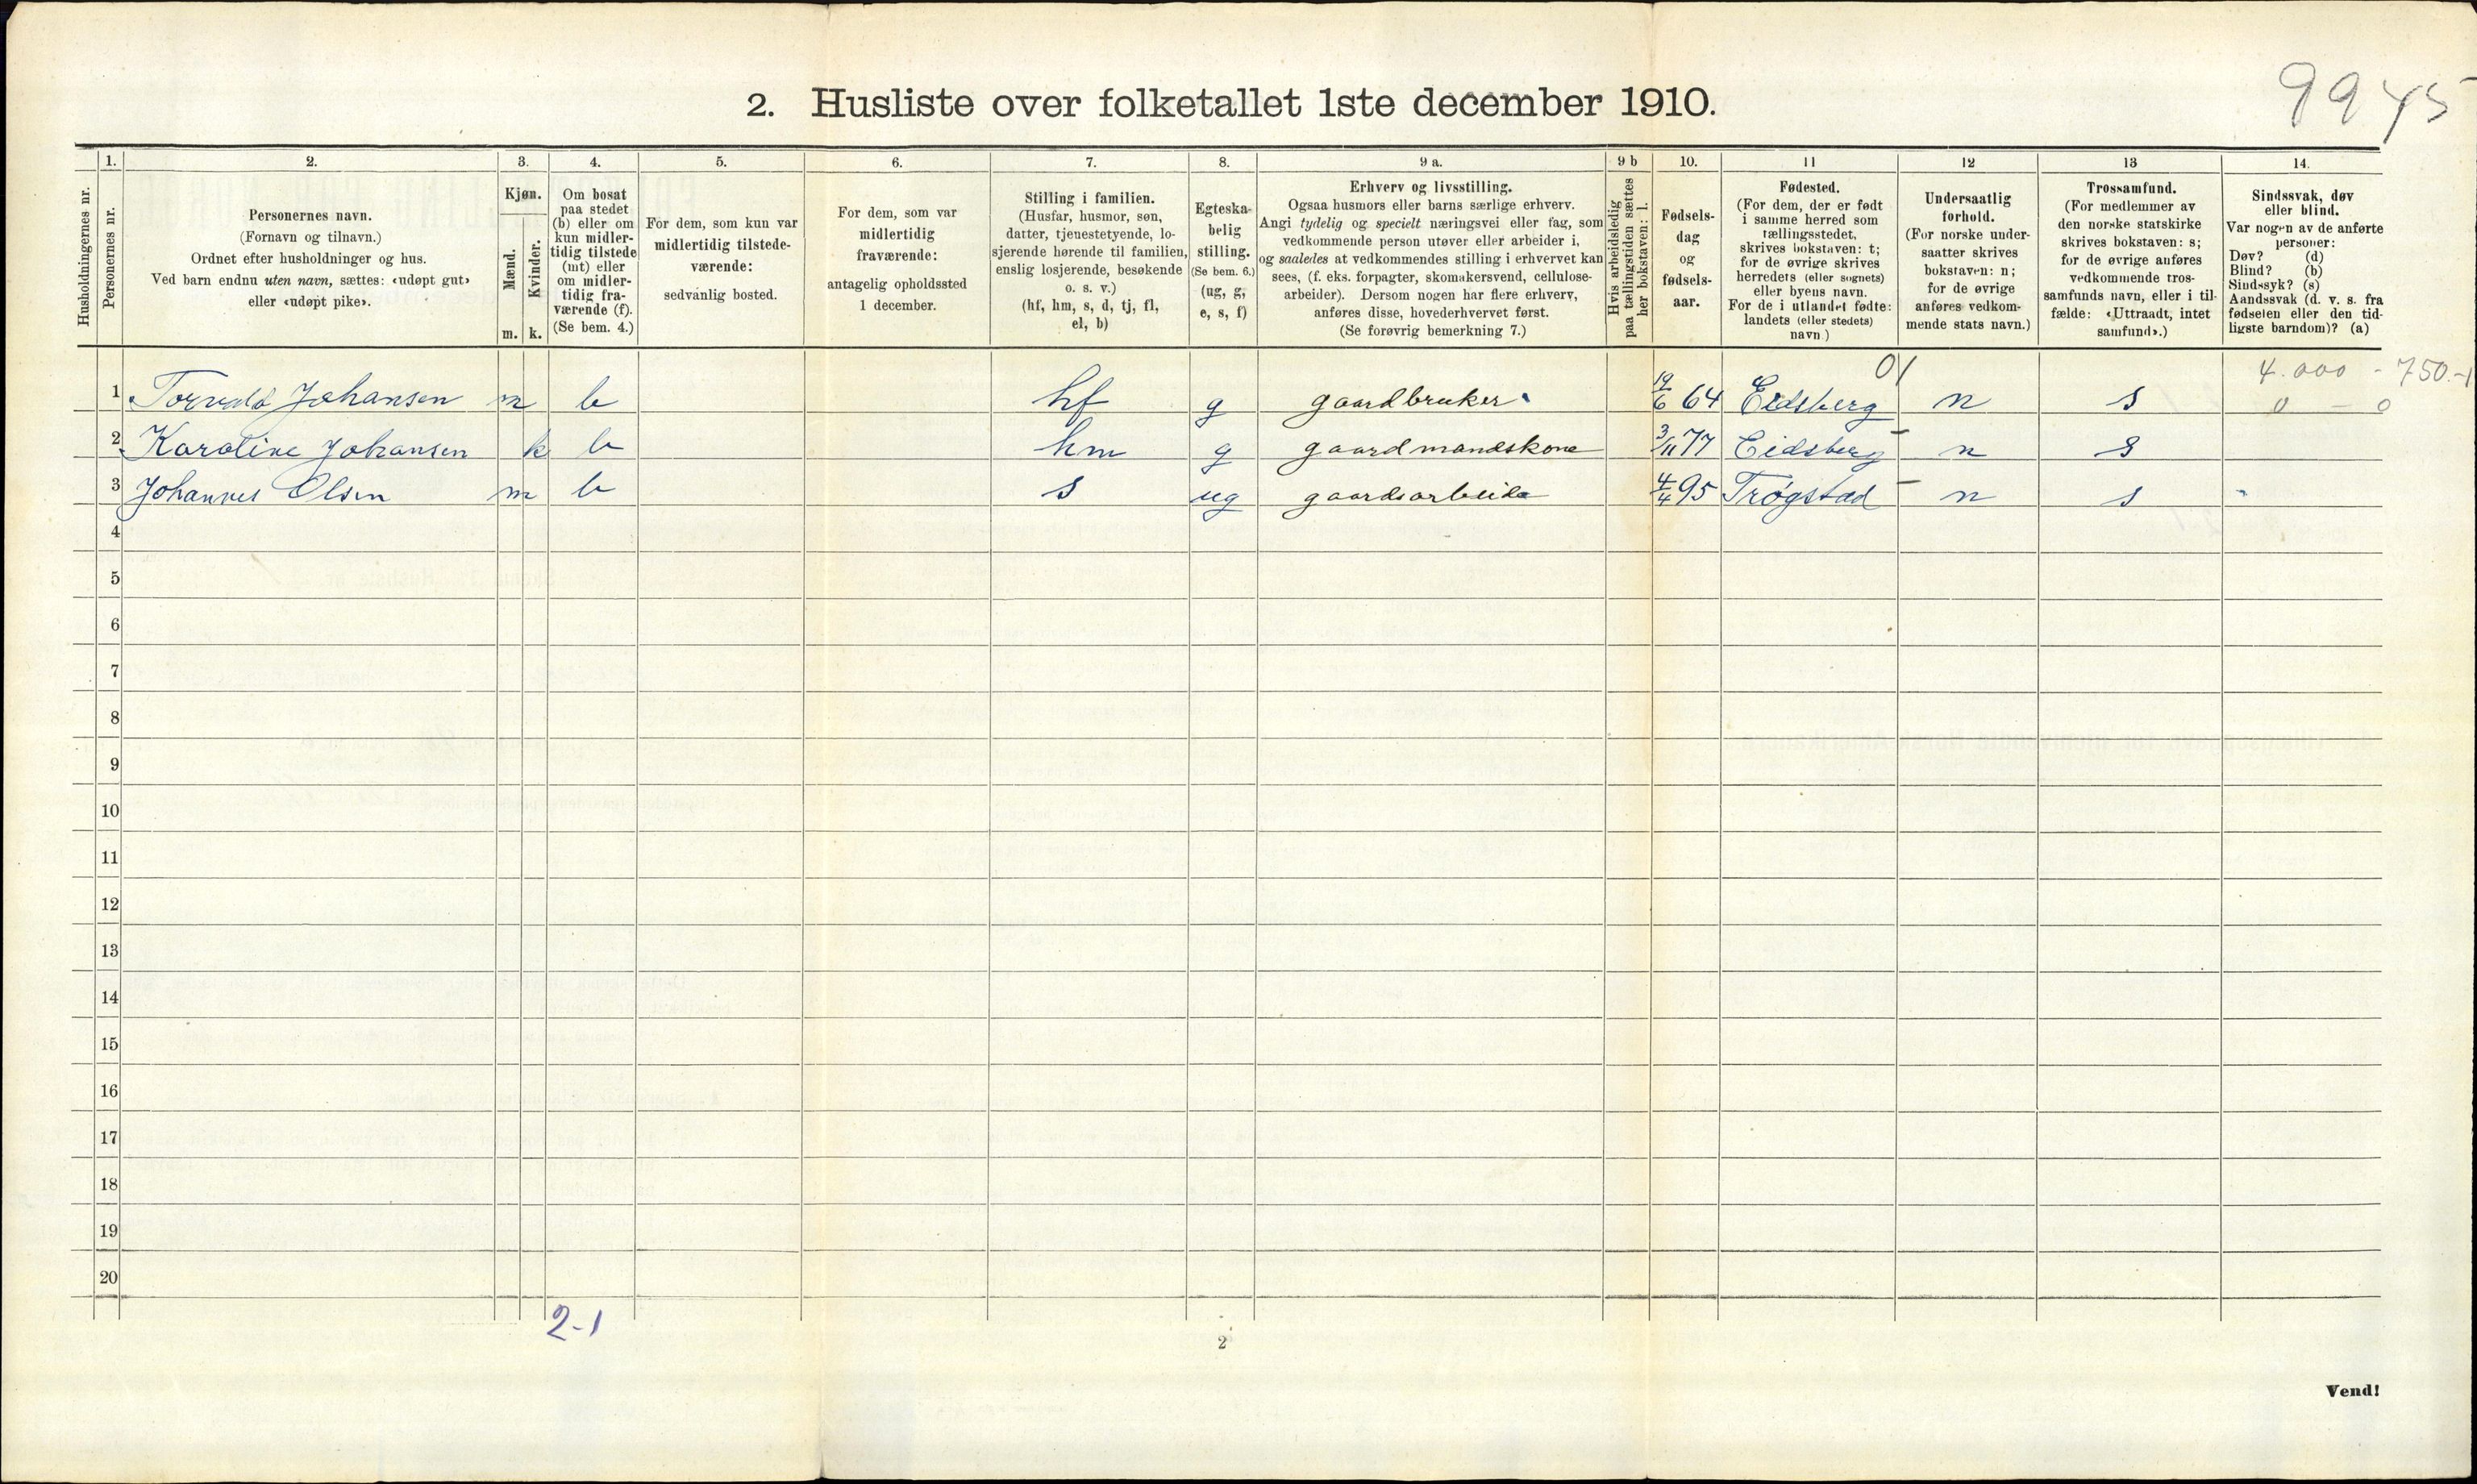 9945
2. Husliste over folketallet 1ste december 1910.
Husholdningernes nr.
1.
Personernes nr.
2.
Personernes navn.
(Fornavn og tilnavn.)
Ordnet efter husholdninger og hus.
Ved barn endnu uten navn, sættes: «udøpt gut»
eller «udøpt pike».
3.
Kjøn.
Mænd.
Kvinder.
m. k.
4.
Om bosat
paa stedet
(b) eller om
kun midler-
tidig tilstede
(mt) eller
om midler-
tidig fra-
værende (f).
(Se bem. 4.)
5.
For dem, som kun var
midlertidig tilstede-
værende:
sedvanlig bosted.
6.
For dem, som var
midlertidig
fraværende:
antagelig opholdssted
1 december.
7.
Stilling i familien.
(Husfar, husmor, søn,
datter, tjenestetyende, lo-
sjerende hørende til familien,
enslig losjerende, besøkende
o. s. v.)
(hf, hm, s, d, tj, fl,
el, b)
8.
Egteska-
belig
stilling.
(Se bem. 6.)
(ug, g,
e, s, f)
9 a.
Erhverv og livsstilling.
Ogsaa husmors eller barns særlige erhverv.
Angi tydelig og specielt næringsvei eller fag, som
vedkommende person utøver eller arbeider i,
og saaledes at vedkommendes stilling i erhvervet kan
sees, (f. eks. forpagter, skomakersvend, cellulose-
arbeider). Dersom nogen har flere erhverv,
anføres disse, hovederhvervet først.
(Se forøvrig bemerkning 7.)
9 b
Hvis arbeidsledig
paa tællingstiden sættes
her bokstaven: l.
10.
Fødsels-
dag
og
fødsels-
aar.
11
Fødested.
(For dem, der er født
i samme herred som
tællingsstedet,
skrives bokstaven: t;
for de øvrige skrives
herredets (eller sognets)
eller byens navn.
For de i utlandet fødte:
landets (eller stedets)
navn.)
12
Undersaatlig
forhold.
(For norske under-
saatter skrives
bokstaven: n;
for de øvrige
anføres vedkom-
mende stats navn.)
13
Trossamfund.
(For medlemmer av
den norske statskirke
skrives bokstaven: s;
for de øvrige anføres
vedkommende tros-
samfunds navn, eller i til-
fælde: «Uttraadt, intet
samfund».)
14.
Sindssvak, døv
eller blind.
Var nogen av de anførte
personer:
Døv? (d)
Blind? (b)
Sindssyk? (s)
Aandssvak (d. v. s. fra
fødselen eller den tid-
ligste barndom)? (a)
01 4.000 - 750.-1
1 Torvald Johansen m b hf g gaardbruker 19/6 64 Eidsberg n s 0 - 0
2 Karoline Johansen k b hm g gaardmandskone 3/11 77 Eidsberg n s
3 Johannes Olsen m b s ug gaardsarbeide 4/4 95 Trøgstad n s
4
5
6
7
8
9
10
11
12
13
14
15
16
17
18
19
20
2-1
2
Vend!